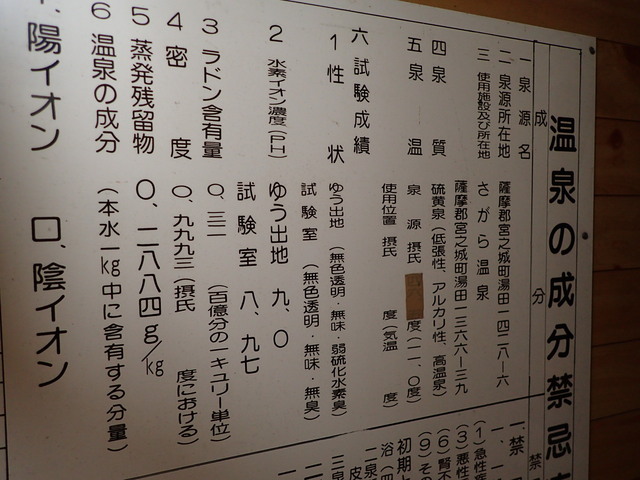 温泉の成分禁忌
成 分
一 泉源名
二 泉源所在地 薩摩郡宮之城町湯田一四二八ー六
三 使用施設及び所在地 さがら温泉
薩摩郡宮之城町湯田一三六六ー三九
四 泉質 硫黄泉(低張性、アルカリ性、高温泉)
五 泉温 泉源 摂氏 度(一一、〇度)
使用位置 摂氏 度(気温 度)
六 試験成績
1 性状 ゆう出地 (無色透明・無味・弱硫化水素臭)
試験室 (無色透明・無味・無臭)
2 水素イオン濃度(PH) ゆう出地 九、〇
試験室 八、九七
3 ラドン含有量 〇、三二 (百億分の一キュリー単位)
4 密度 〇、九九九三(摂氏 度における)
5 蒸発残留物 〇、二八八四g/kg
6 温泉の成分 (本水一kg中に含有する分量)
陽イオン ロ、陰イオン
禁
一、禁
一、
(1)急性疾
(3)悪性
(6)腎不
(9)その
初期と
浴(四
皮
二泉
三泉
二
一